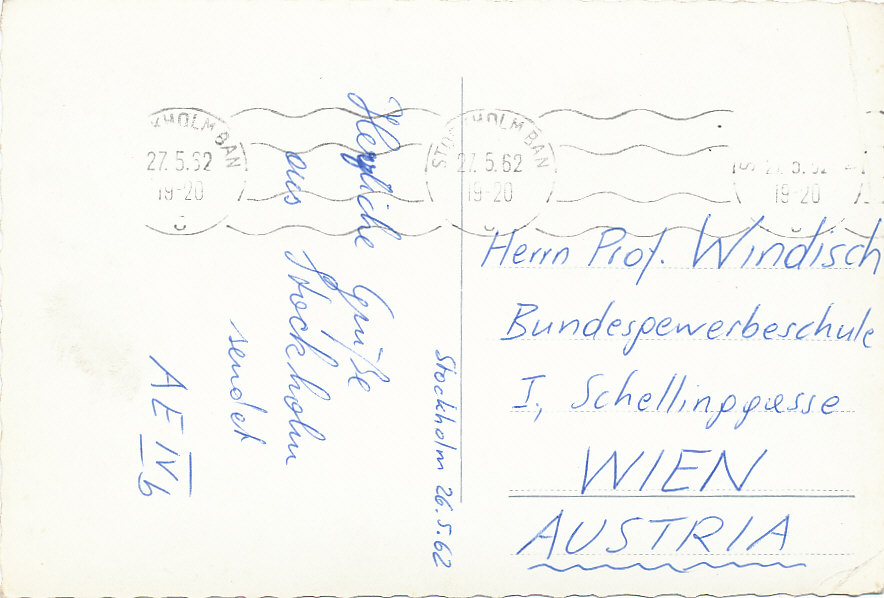 Stockholm 26.5.62
Herzliche Grüße
aus Stockholm
sendet
AE IVb
STOCKHOLM BAN
27.5.62
19-20
STOCKHOLM BAN
27.5.62
19-20
27.5.62
19-20
Herrn Prof. Windisch
Bundesgewerbeschule
I, Schellinggasse
WIEN
AUSTRIA